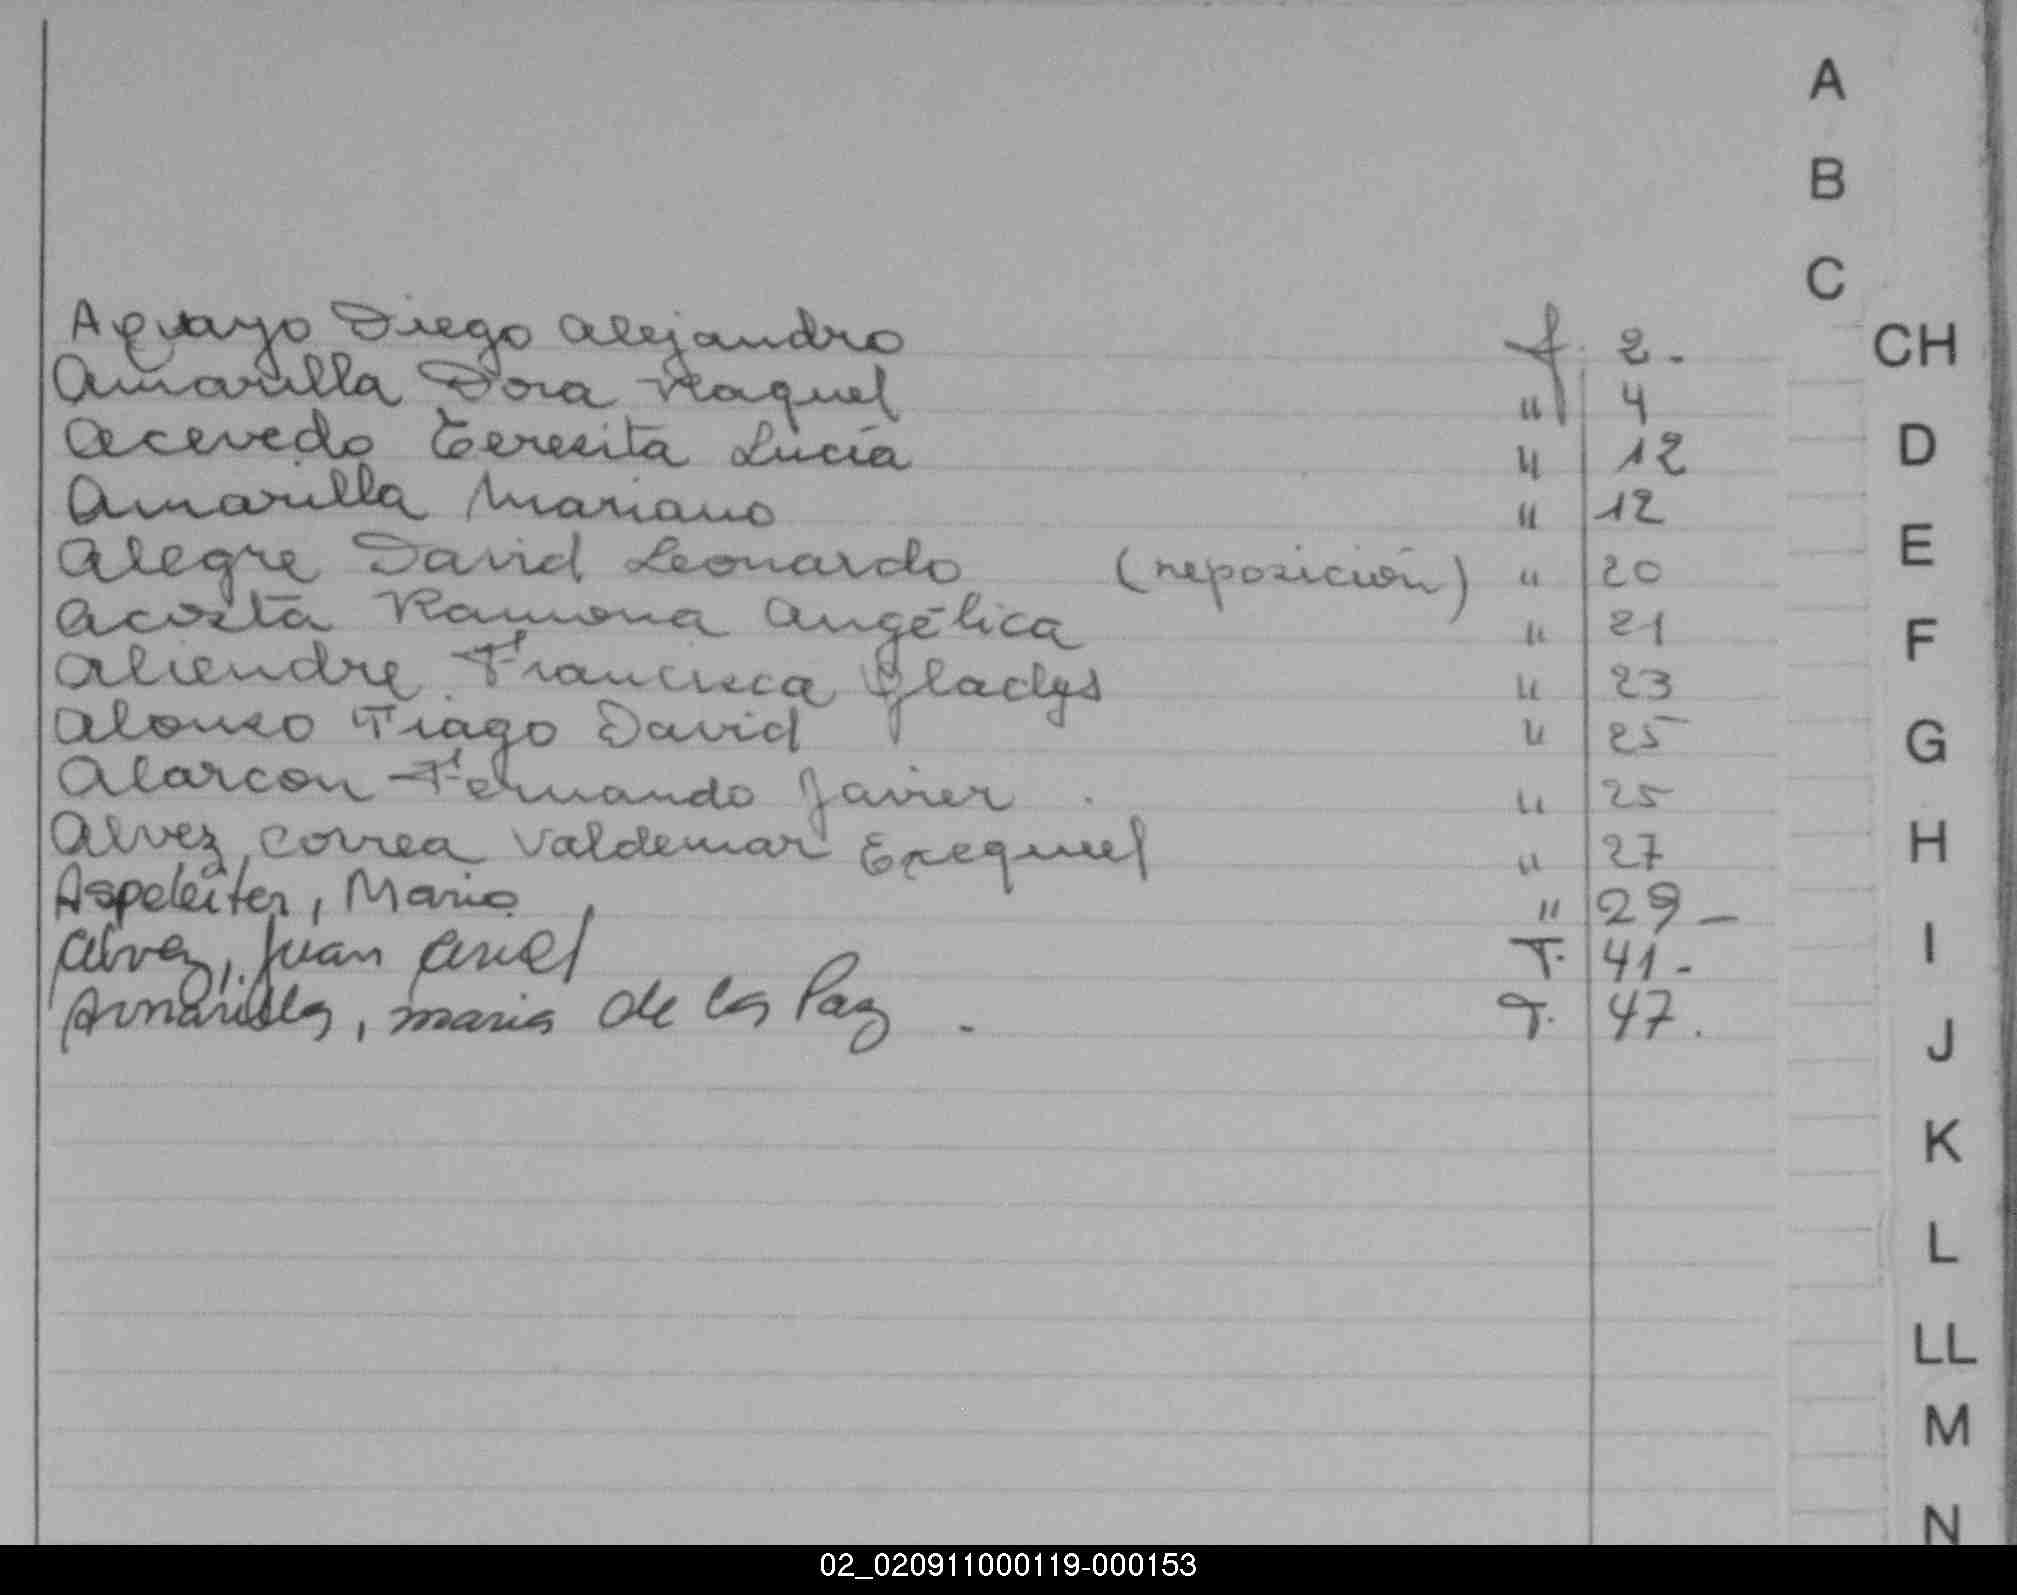 A
B
C
CH
D
E
F
G
H
I
J
K
L
LL
M
N
Aguayo Diego Alejandro f. 2.
Amarilla Dora Raquel " 4
Acevedo Teresita Lucía " 12
Amarilla Mariano " 12
Alegre David Leonardo (reposición) " 20
Acosta Ramona Angélica " 21
Aliendre Francisca Gladys " 23
Alonso Tiago David " 25
Alarcon Fernando Javier . " 25
Alvez, Correa Valdemar Exequiel " 27
Aspeleiter, Mario " 29 -
Alvez, Juan Ariel T. 41.-
Amarilla, maria de la Paz . T. 47.
02_020911000119-000153